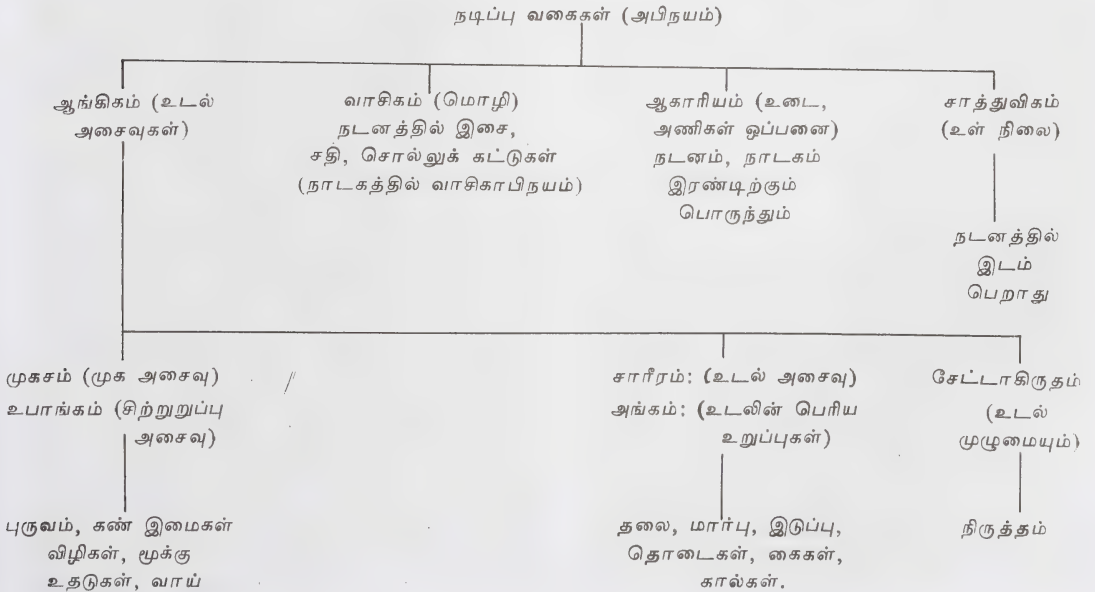 நடிப்பு வகைகள் (அபிநயம்)
ஆங்கிகம் (உடல்
அசைவுகள்)
வாசிகம் (மொழி)
நடனத்தில் இசை,
சதி, சொல்லுக் கட்டுகள்
(நாடகத்தில் வாசிகாபிநயம்)
ஆகாரியம் (உடை,
அணிகள் ஒப்பனை)
நடனம், நாடகம்
இரண்டிற்கும்
பொருந்தும்
சாத்துவிகம்
(உள் நிலை)
நடனத்தில்
இடம்
பெறாது
முகசம் (முக அசைவு)
உபாங்கம் (சிற்றுறுப்பு
அசைவு)
புருவம், கண் இமைகள்
விழிகள், மூக்கு
உதடுகள், வாய்
சாரீரம்: (உடல் அசைவு)
அங்கம்: (உடலின் பெரிய
உறுப்புகள்)
தலை, மார்பு, இடுப்பு,
தொடைகள், கைகள்,
கால்கள்.
சேட்டாகிருதம்
(உடல்
முழுமையும்)
நிருத்தம்